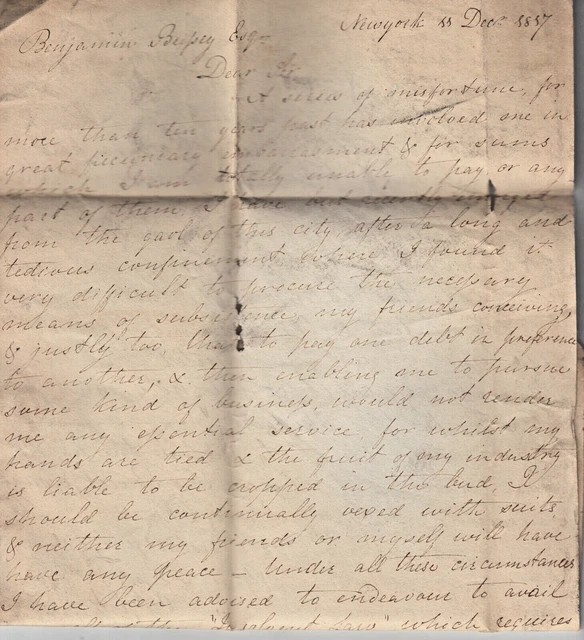 Newyork 11 Decr 1817
Benjamin Esqr
Dear Sir
A series of misfortune, for
more than ten years past has involved me in
great pecuniary embarrassment & for sums
which I am totally unable to pay or any
part of them I have but recently
from the gaol of this city after a long and
tedious confinement where I found it
very difficult to procure the necessary
means of subsistence, my friends conceiving,
& justly too, that to pay one debt in preference
to another, & then enabling me to pursue
some kind of business, would not render
me any essential service, for whilst my
hands are tied & the fruit of my industry
is liable to be cropped in the bud, I
should be continually vexed with suits,
& neither my friends or myself will have
have any peace – Under all these circumstances
I have been advised to endeavour to avail
"Insolvent Law" which requires